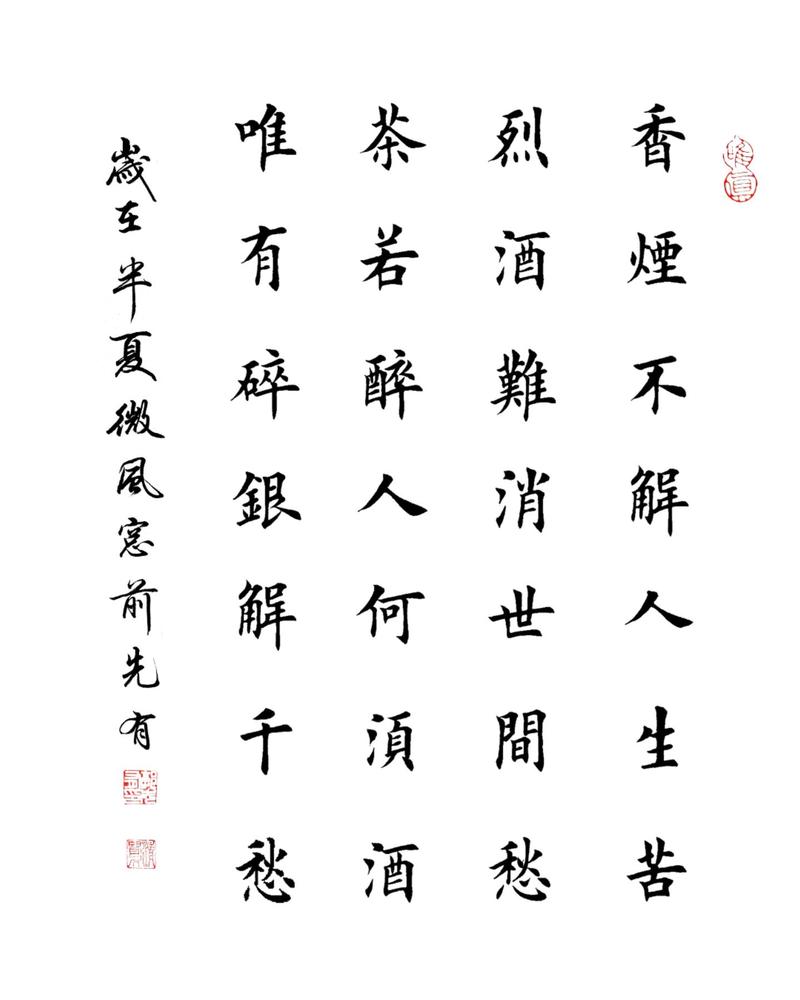 香煙不解人生苦
烈酒難消世間愁
茶若醉人何須酒
唯有碎銀解千愁
歲在半夏微風窓前先有